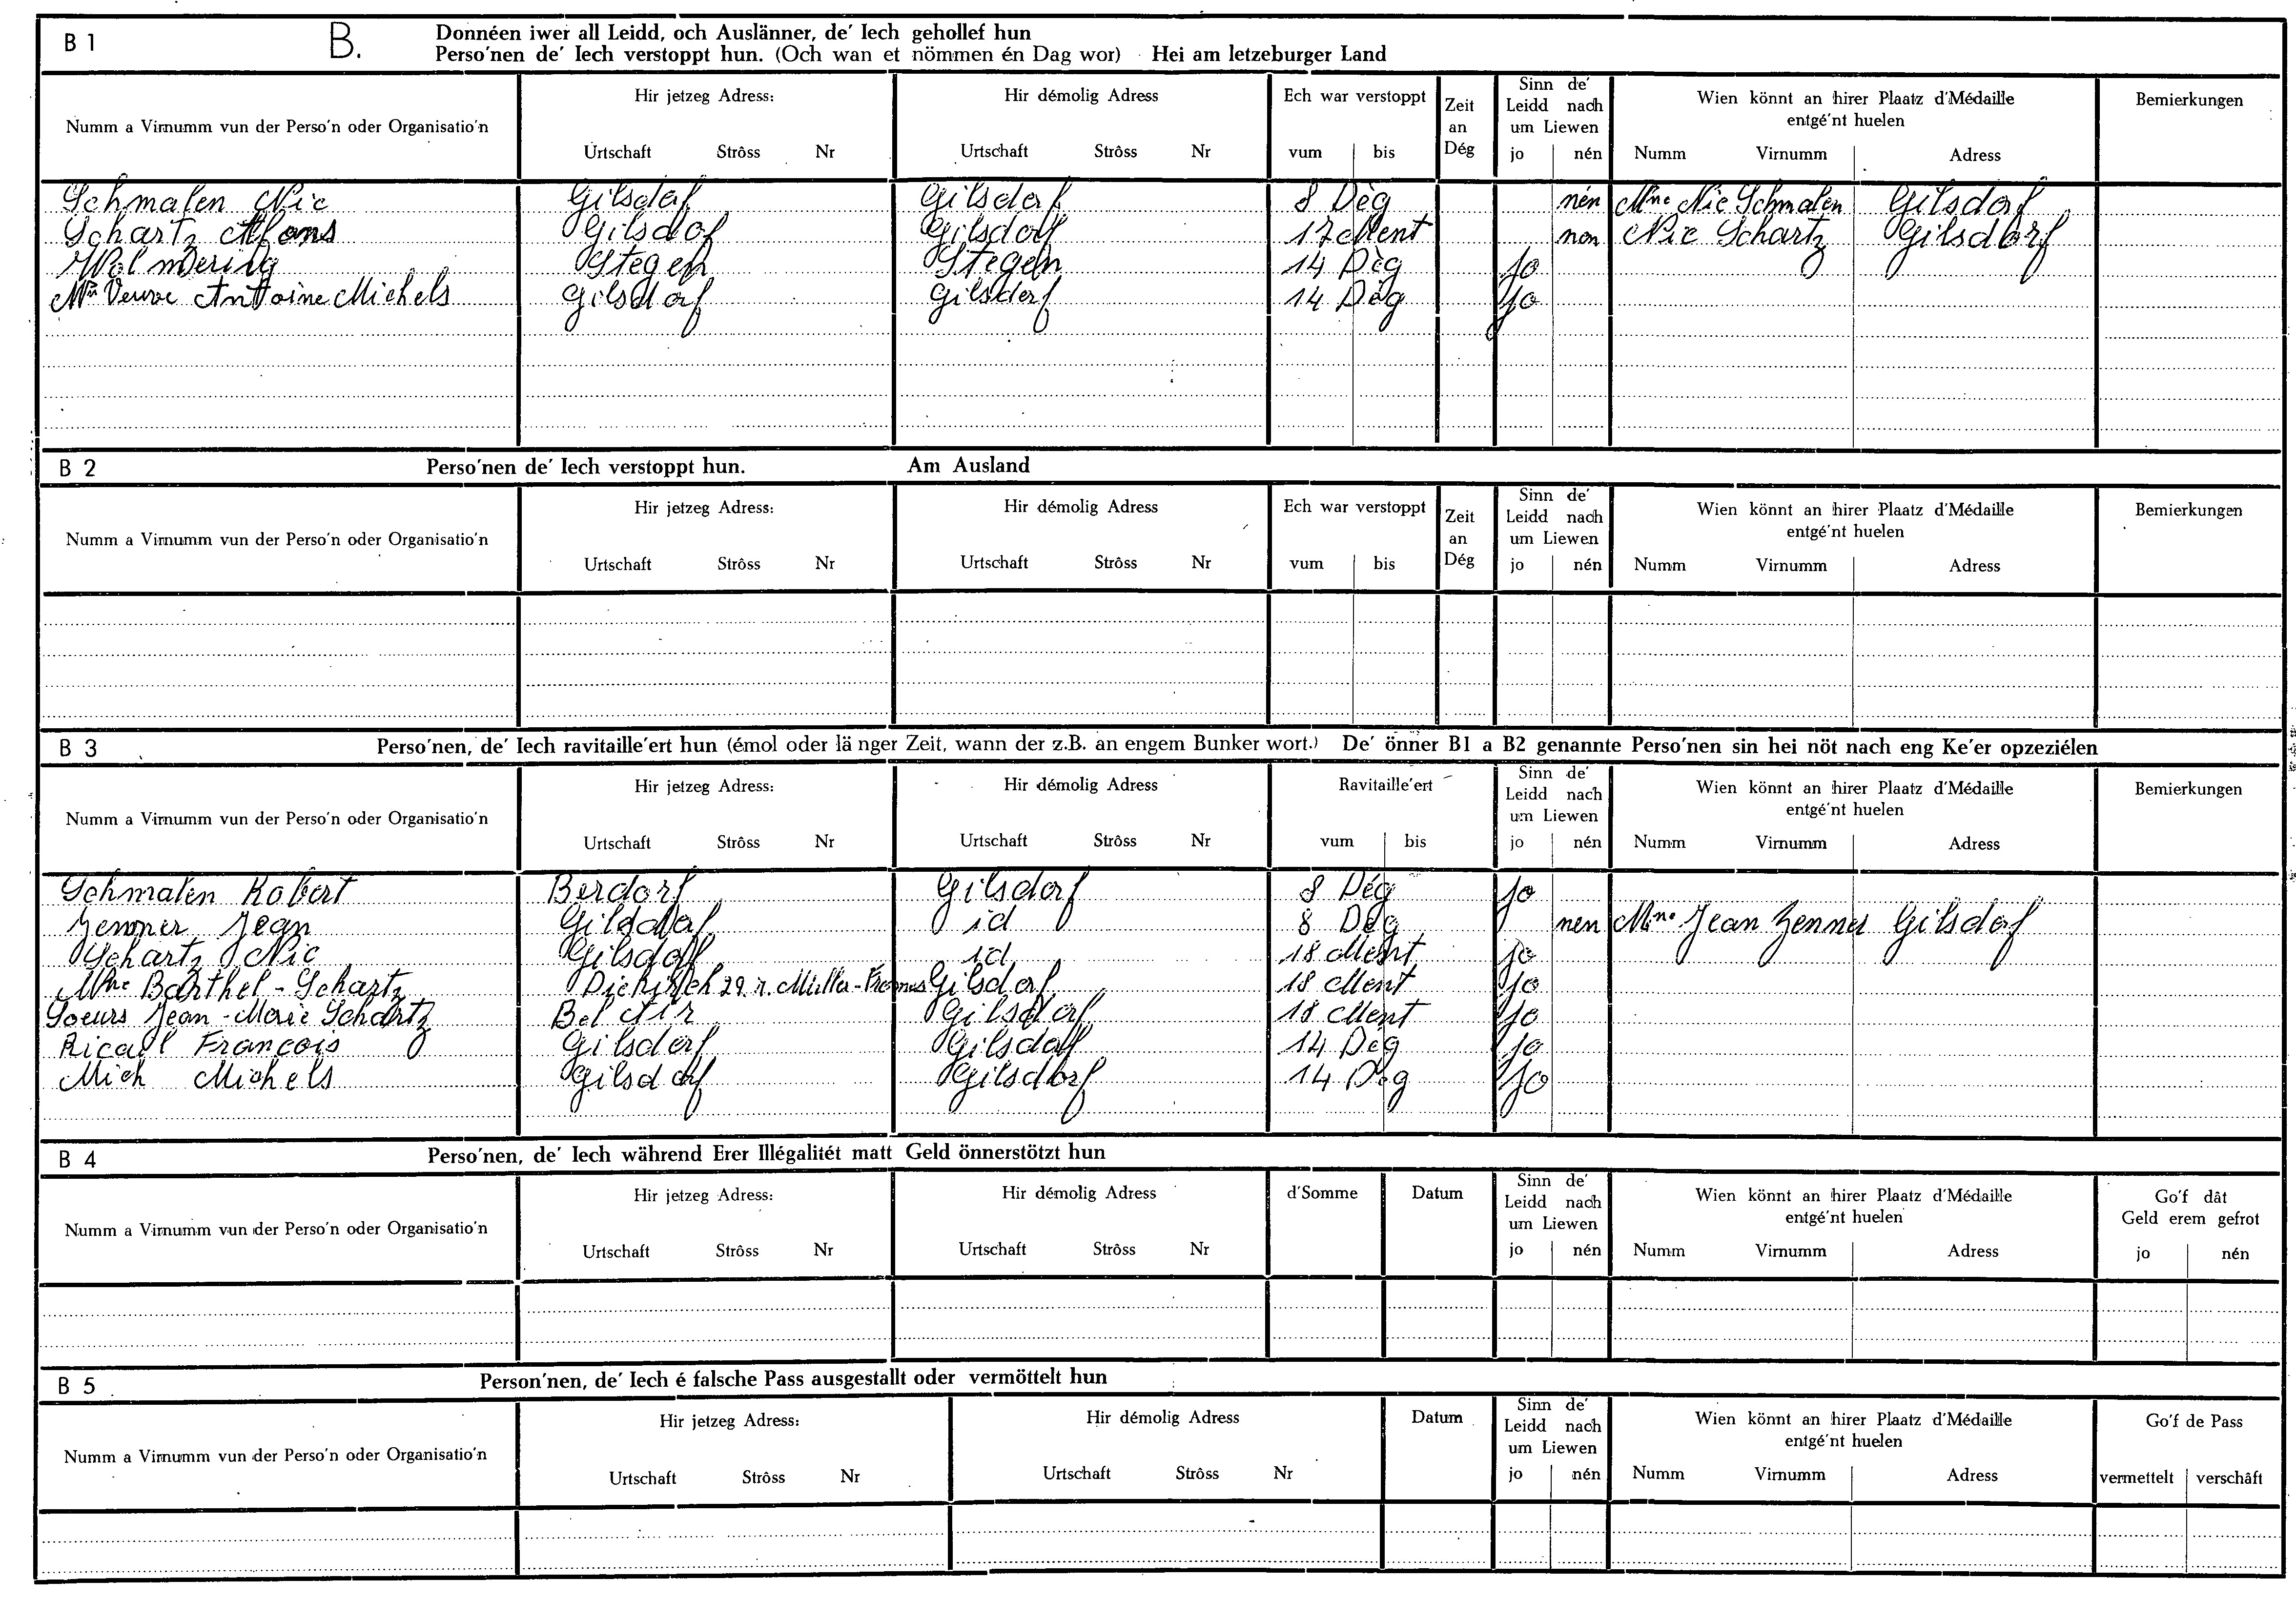 B 1 B. Donnéen iwer all Leidd, och Auslänner, de' Iech gehollef hun
Perso'nen de' Iech verstoppt hun. (Och wan et nömmen én Dag wor) Hei am letzeburger Land
Numm a Virnumm vun der Perso'n oder Organisatio'n Hir jetzeg Adress: Urtschaft Strôss Nr Hir démolig Adress Urtschaft Strôss Nr Ech war verstoppt vum bis Zeit an Dég Sinn de' Leidd nach um Liewen jo nén Wien könnt an hirer Plaatz d'Médaille entgé'nt huelen Numm Virnumm Adress Bemierkungen
Schmalen Nic Gilsdorf Gilsdorf 8 Dèg nén Mme Nic Schmalen Gilsdorf
Schartz Alfons Gilsdorf Gilsdorf 17 Ment non Nic Schartz Gilsdorf
Wolmering Stegen Stegen 14 Dèg Jo
Veuve Antoine Michels Gilsdorf Gilsdorf 14 Dèg Jo
B 2 Perso'nen de' Iech verstoppt hun. Am Ausland
Numm a Virnumm vun der Perso'n oder Organisatio'n Hir jetzeg Adress: Urtschaft Strôss Nr Hir démolig Adress Urtschaft Strôss Nr Ech war verstoppt vum bis Zeit an Dég Sinn de' Leidd nach um Liewen jo nén Wien könnt an hirer Plaatz d'Médaille entgé'nt huelen Numm Virnumm Adress Bemierkungen
B 3 Perso'nen, de' Iech ravitaille'ert hun (émol oder länger Zeit, wann der z.B. an engem Bunker wort.) De' önner B1 a B2 genannte Perso'nen sin hei nöt nach eng Ke'er opzeziélen
Numm a Virnumm vun der Perso'n oder Organisatio'n Hir jetzeg Adress: Urtschaft Strôss Nr Hir démolig Adress Urtschaft Strôss Nr Ravitaille'ert vum bis Sinn de' Leidd nach um Liewen jo nén Wien könnt an hirer Plaatz d'Médaille entgé'nt huelen Numm Virnumm Adress Bemierkungen
Schmalen Robert Berdorf Gilsdorf 8 Dég Jo
Zenner Jean Gilsdorf id 8 Dég nen Mme Jean Zenner Gilsdorf
Schartz Nic Gilsdorf id 18 Ment Jo
Mme Barthel-Schartz Diekirch 29. r. Gilsdorf 18 Ment Jo
Soeurs Jean-Marie Schartz Bel Air Gilsdorf 18 Ment Jo
François Gilsdorf Gilsdorf 14 Dèg Jo
Mich Michels Gilsdorf Gilsdorf 14 Dèg Jo
B 4 Perso'nen, de' Iech während Erer Illégalitét matt Geld önnerstötzt hun
Numm a Virnumm vun der Perso'n oder Organisatio'n Hir jetzeg Adress: Urtschaft Strôss Nr Hir démolig Adress Urtschaft Strôss Nr d'Somme Datum Sinn de' Leidd nach um Liewen jo nén Wien könnt an hirer Plaatz d'Médaille entgé'nt huelen Numm Virnumm Adress Go'f dât Geld erem gefrot jo nén
B 5 Person'nen, de' Iech é falsche Pass ausgestallt oder vermöttelt hun
Numm a Virnumm vun der Perso'n oder Organisatio'n Hir jetzeg Adress: Urtschaft Strôss Nr Hir démolig Adress Urtschaft Strôss Nr Datum Sinn de' Leidd nach um Liewen jo nén Wien könnt an hirer Plaatz d'Médaille entgé'nt huelen Numm Virnumm Adress Go'f de Pass vermettelt verschâft